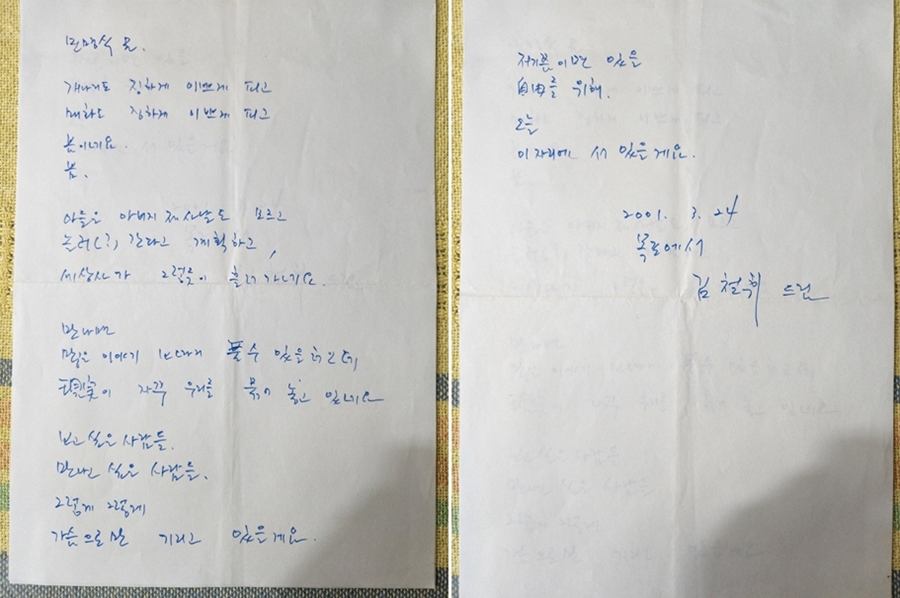 개나리도 징하게 이쁘게 피고
매화도 징하게 이쁘게 피고
봄이네요.
봄.
아들은 아버지 제삿날도 모르고
놀러(?) 간다고 계획하고,
세상사가 그렇듯이 흘러가네요.
만나면
많은 이야기 보따리 풀 수 있을라고
자꾸 우리를 묶어 놓고 있네요
보고 싶은 사람들.
만나고 싶은 사람들.
그렇게 그렇게
가슴으로만 기리고 있을게요.
저기쯤 이면 있을
自由를 위해.
오늘
이 자리에 서 있을게요.
2001. 3. 24
목포에서
김철휘 드림